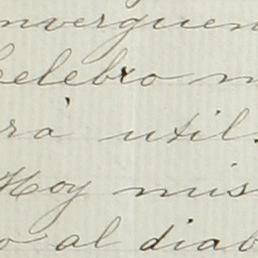 nverguen
Celebro m
rá util.
Hoy mis
o al diab